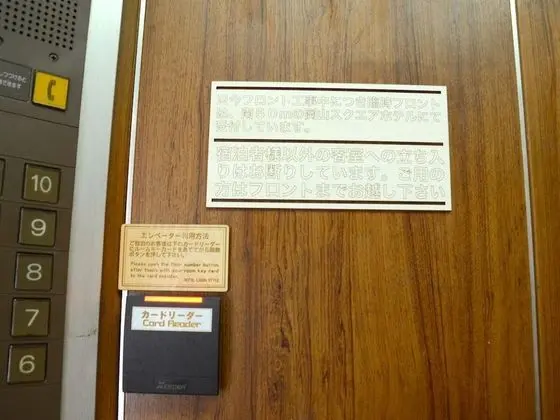 只今フロント工事中につき臨時フロント
は、南50mの岡山スクエアホテルにて
受付しています。
宿泊者様以外の客室への立ち入
りはお断りしています。ご用の
方はフロントまでお越し下さい
エレベーター利用方法
ご宿泊のお客様は下のカードリーダー
にルームキーカードをあててから階数
ボタンを押して下さい。
Please push the floor number button
after touch with your room key card
to the card reader.
カードリーダー
Card Reader
10
9
8
7
6